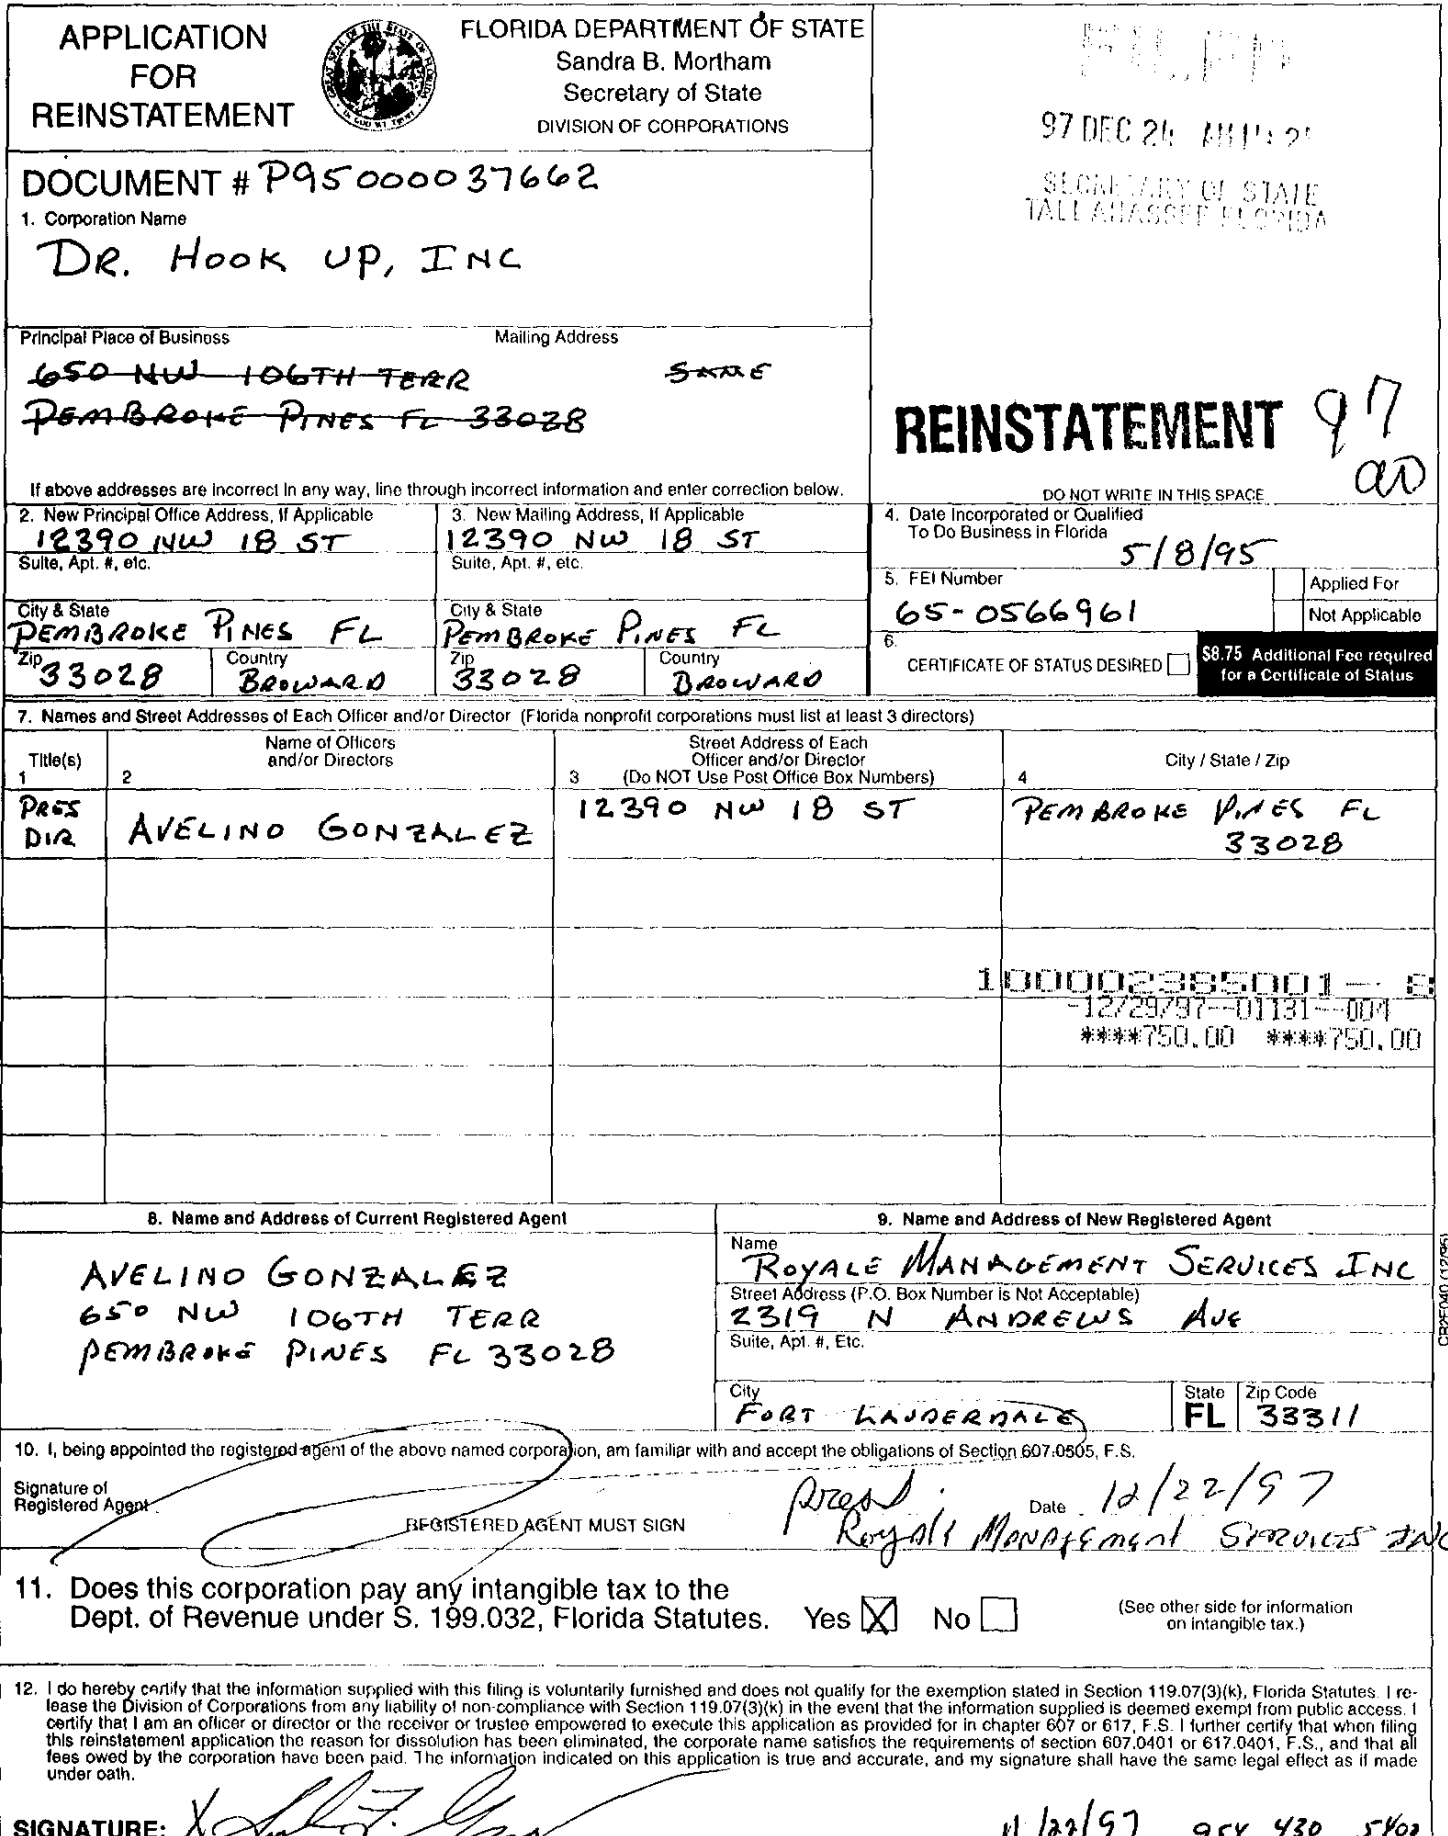 APPLICATION
FOR
REINSTATEMENT
FLORIDA DEPARTMENT OF STATE
Sandra B. Mortham
Secretary of State
DIVISION OF CORPORATIONS
97 DEC 24
SECRETARY OF STATE
TALLAHASSEE FLORIDA
DOCUMENT # P95000037662
1. Corporation Name
DR. HOOK UP, INC
Principal Place of Business Mailing Address
650 NW 106TH TERR SAME
PEMBROKE PINES FL 33028
REINSTATEMENT 97
If above addresses are incorrect in any way, line through incorrect information and enter correction below.
DO NOT WRITE IN THIS SPACE
2. New Principal Office Address, If Applicable
12390 NW 18 ST
Suite, Apt. #, etc.
City & State
PEMBROKE PINES FL
Zip 33028 Country BROWARD
3. New Mailing Address, If Applicable
12390 NW 18 ST
Suite, Apt. #, etc.
City & State
PEMBROKE PINES FL
Zip 33028 Country BROWARD
4. Date Incorporated or Qualified
To Do Business in Florida
5/8/95
5. FEI Number
65-0566961
Applied For
Not Applicable
6.
CERTIFICATE OF STATUS DESIRED
$8.75 Additional Fee required
for a Certificate of Status
7. Names and Street Addresses of Each Officer and/or Director (Florida nonprofit corporations must list at least 3 directors)
Title(s)
1
Name of Officers
and/or Directors
2
Street Address of Each
Officer and/or Director
3 (Do NOT Use Post Office Box Numbers)
City / State / Zip
4
PRES
DIR
AVELINO GONZALEZ
12390 NW 18 ST
PEMBROKE PINES FL
33028
100002385001--8
-12/29/97--01131--004
****750.00 ****750.00
8. Name and Address of Current Registered Agent
AVELINO GONZALEZ
650 NW 106TH TERR
PEMBROKE PINES FL 33028
9. Name and Address of New Registered Agent
Name
ROYALE MANAGEMENT SERVICES INC
Street Address (P.O. Box Number is Not Acceptable)
2319 N ANDREWS AVE
Suite, Apt. #, Etc.
City
FORT LAUDERDALE
State
FL
Zip Code
33311
CR2E040 (12/95)
10. I, being appointed the registered agent of the above named corporation, am familiar with and accept the obligations of Section 607.0505, F.S.
Signature of
Registered Agent
REGISTERED AGENT MUST SIGN
Date 12/22/97
Royale Management Services INC
11. Does this corporation pay any intangible tax to the
Dept. of Revenue under S. 199.032, Florida Statutes. Yes X No
(See other side for information
on intangible tax.)
12. I do hereby certify that the information supplied with this filing is voluntarily furnished and does not qualify for the exemption stated in Section 119.07(3)(k), Florida Statutes. I re-
lease the Division of Corporations from any liability of non-compliance with Section 119.07(3)(k) in the event that the information supplied is deemed exempt from public access. I
certify that I am an officer or director or the receiver or trustee empowered to execute this application as provided for in chapter 607 or 617, F.S. I further certify that when filing
this reinstatement application the reason for dissolution has been eliminated, the corporate name satisfies the requirements of section 607.0401 or 617.0401, F.S., and that all
fees owed by the corporation have been paid. The information indicated on this application is true and accurate, and my signature shall have the same legal effect as if made
under oath.
SIGNATURE: X